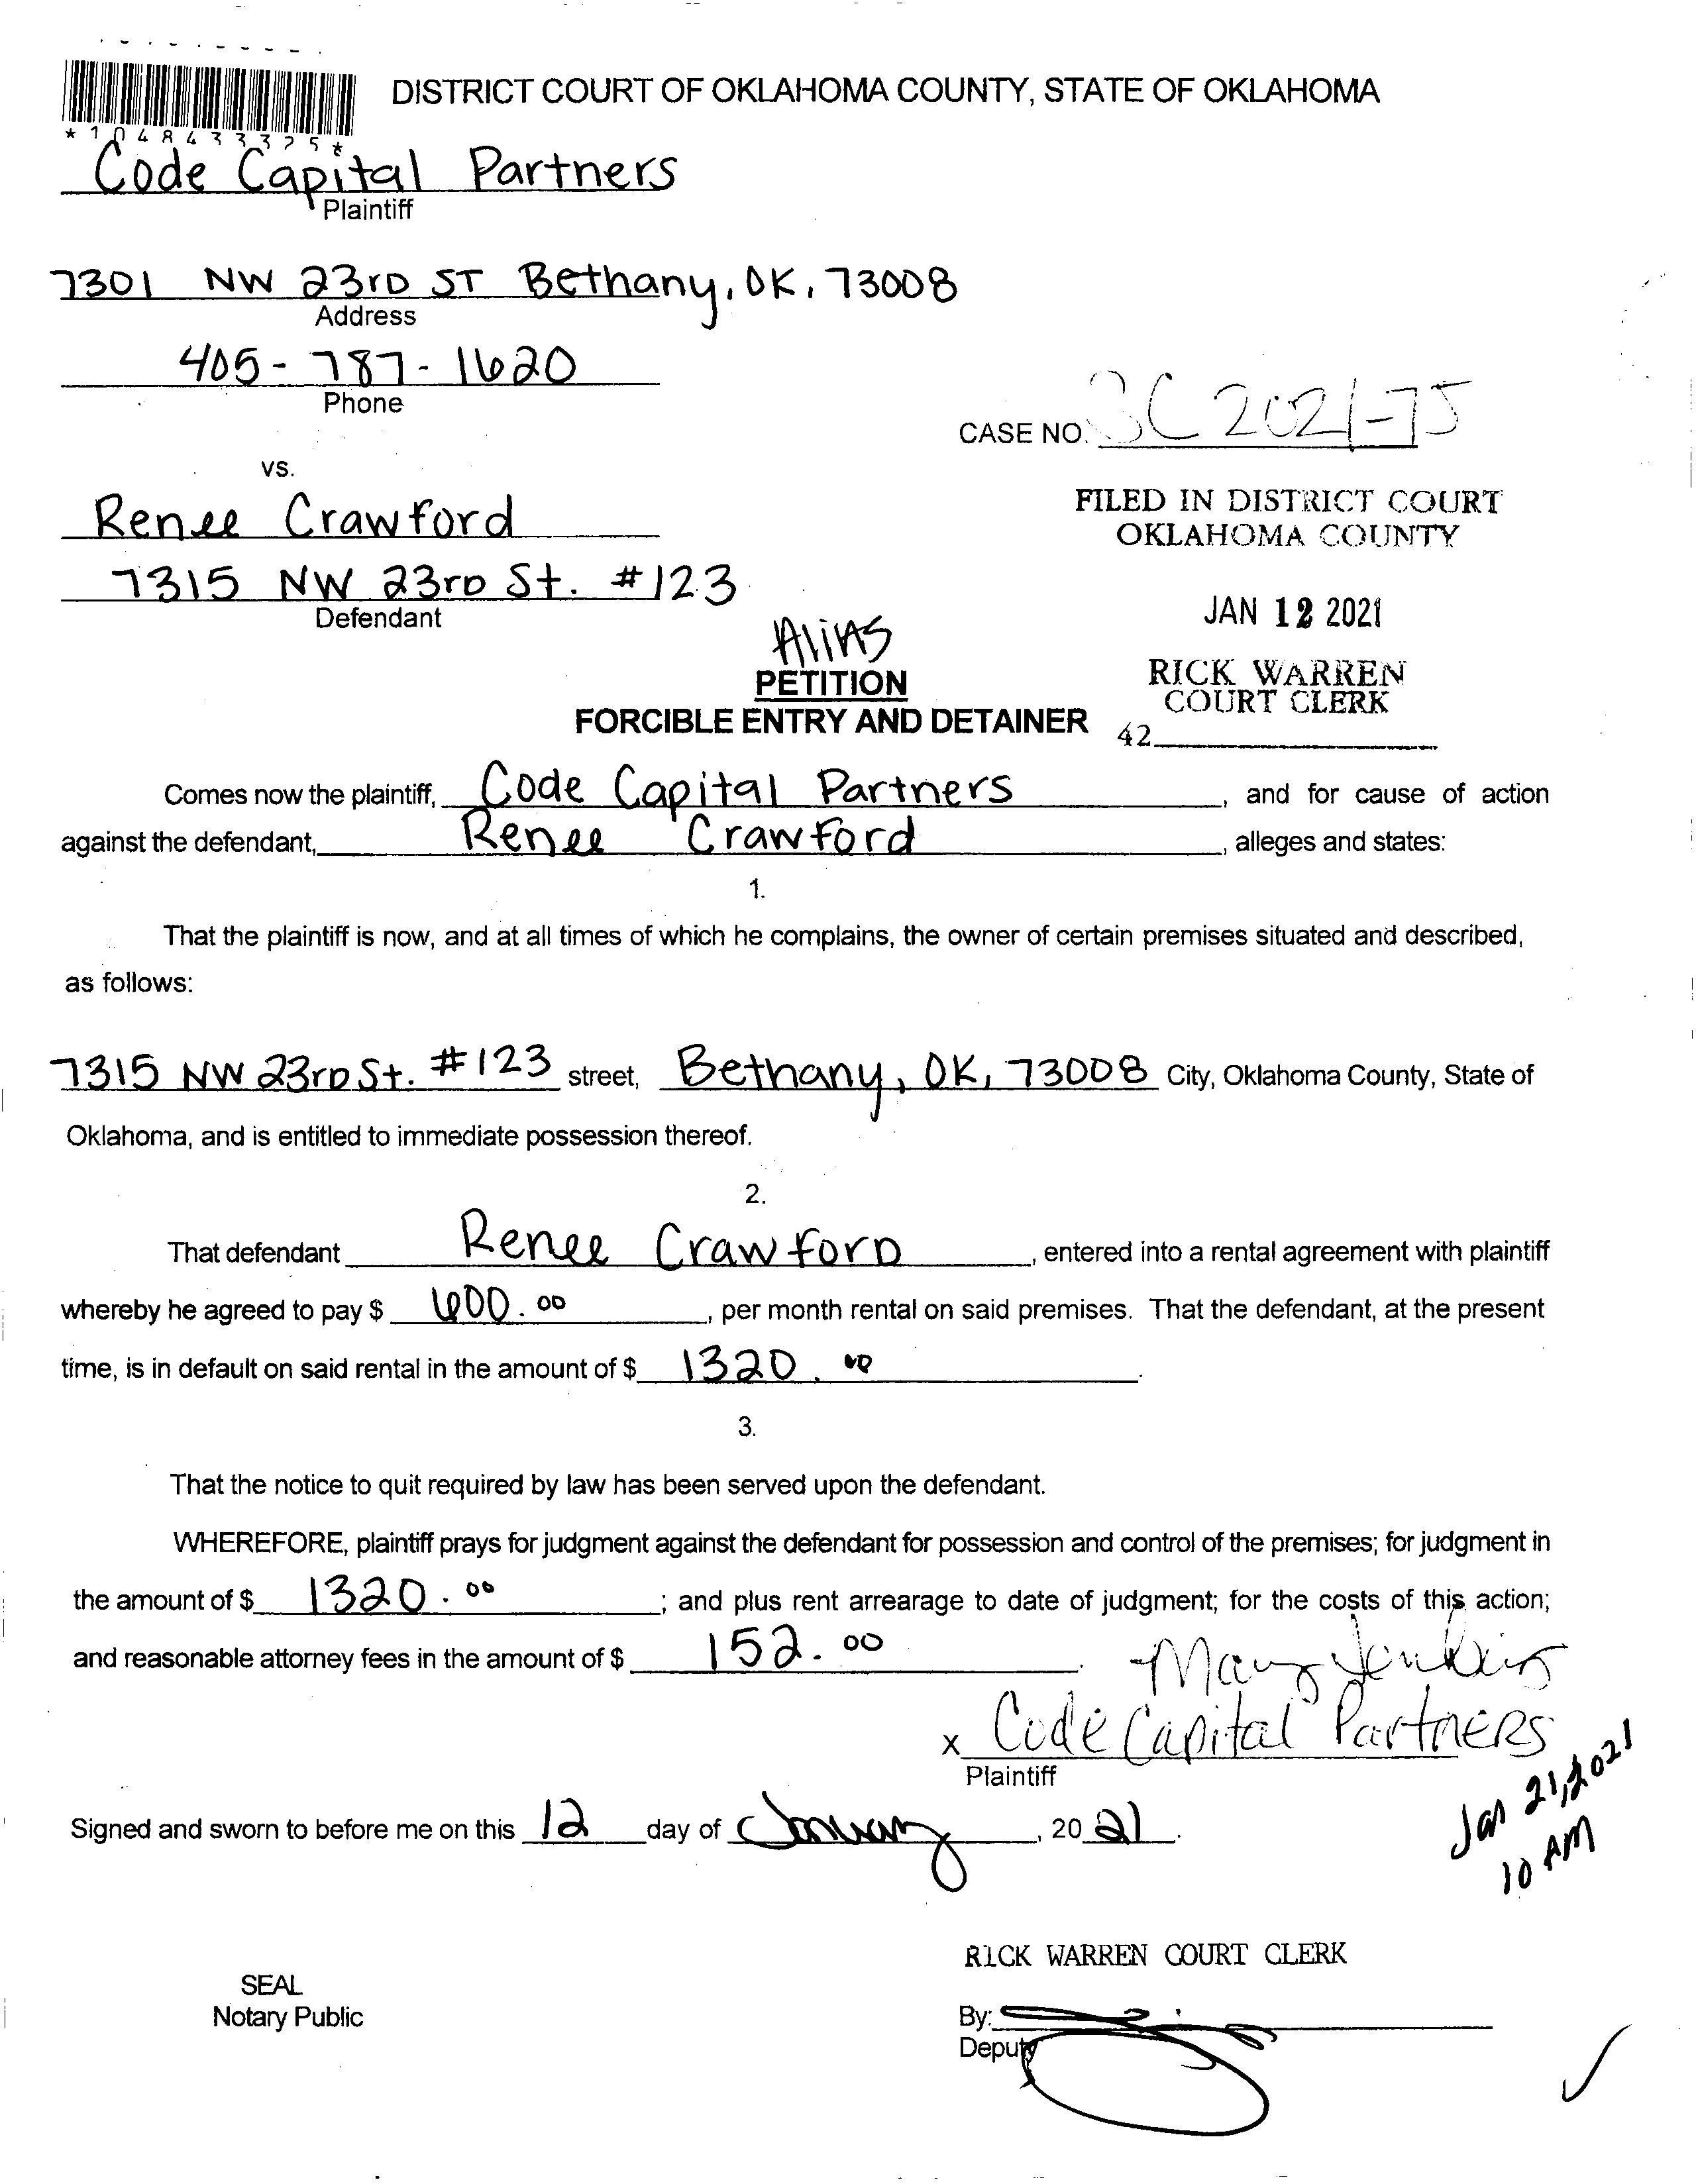 DISTRICT COURT OF OKLAHOMA COUNTY, STATE OF OKLAHOMA
*1048433325*
Code Capital Partners
Plaintiff
7301 NW 23rD ST Bethany, OK, 73008
Address
405-787-1620
Phone
CASE NO. SC 2021-75
vs.
Renee Crawford
FILED IN DISTRICT COURT
OKLAHOMA COUNTY
7315 NW 23rD St. #123
Defendant
JAN 12 2021
Alias
PETITION
RICK WARREN
COURT CLERK
FORCIBLE ENTRY AND DETAINER
42
Comes now the plaintiff, Code Capital Partners, and for cause of action
against the defendant, Renee Crawford, alleges and states:
1.
That the plaintiff is now, and at all times of which he complains, the owner of certain premises situated and described,
as follows:
7315 NW 23rD St. #123 street, Bethany, OK, 73008 City, Oklahoma County, State of
Oklahoma, and is entitled to immediate possession thereof.
2.
That defendant Renee CrawforD, entered into a rental agreement with plaintiff
whereby he agreed to pay $ 600.00, per month rental on said premises. That the defendant, at the present
time, is in default on said rental in the amount of $ 1320.00.
3.
That the notice to quit required by law has been served upon the defendant.
WHEREFORE, plaintiff prays for judgment against the defendant for possession and control of the premises; for judgment in
the amount of $ 1320.00; and plus rent arrearage to date of judgment; for the costs of this action;
and reasonable attorney fees in the amount of $ 152.00.
Mary Jenkins
x Code Capital Partners
Plaintiff
Jan 21, 2021
10 AM
Signed and sworn to before me on this 12 day of January, 2021.
RICK WARREN COURT CLERK
SEAL
Notary Public
By:
Deputy